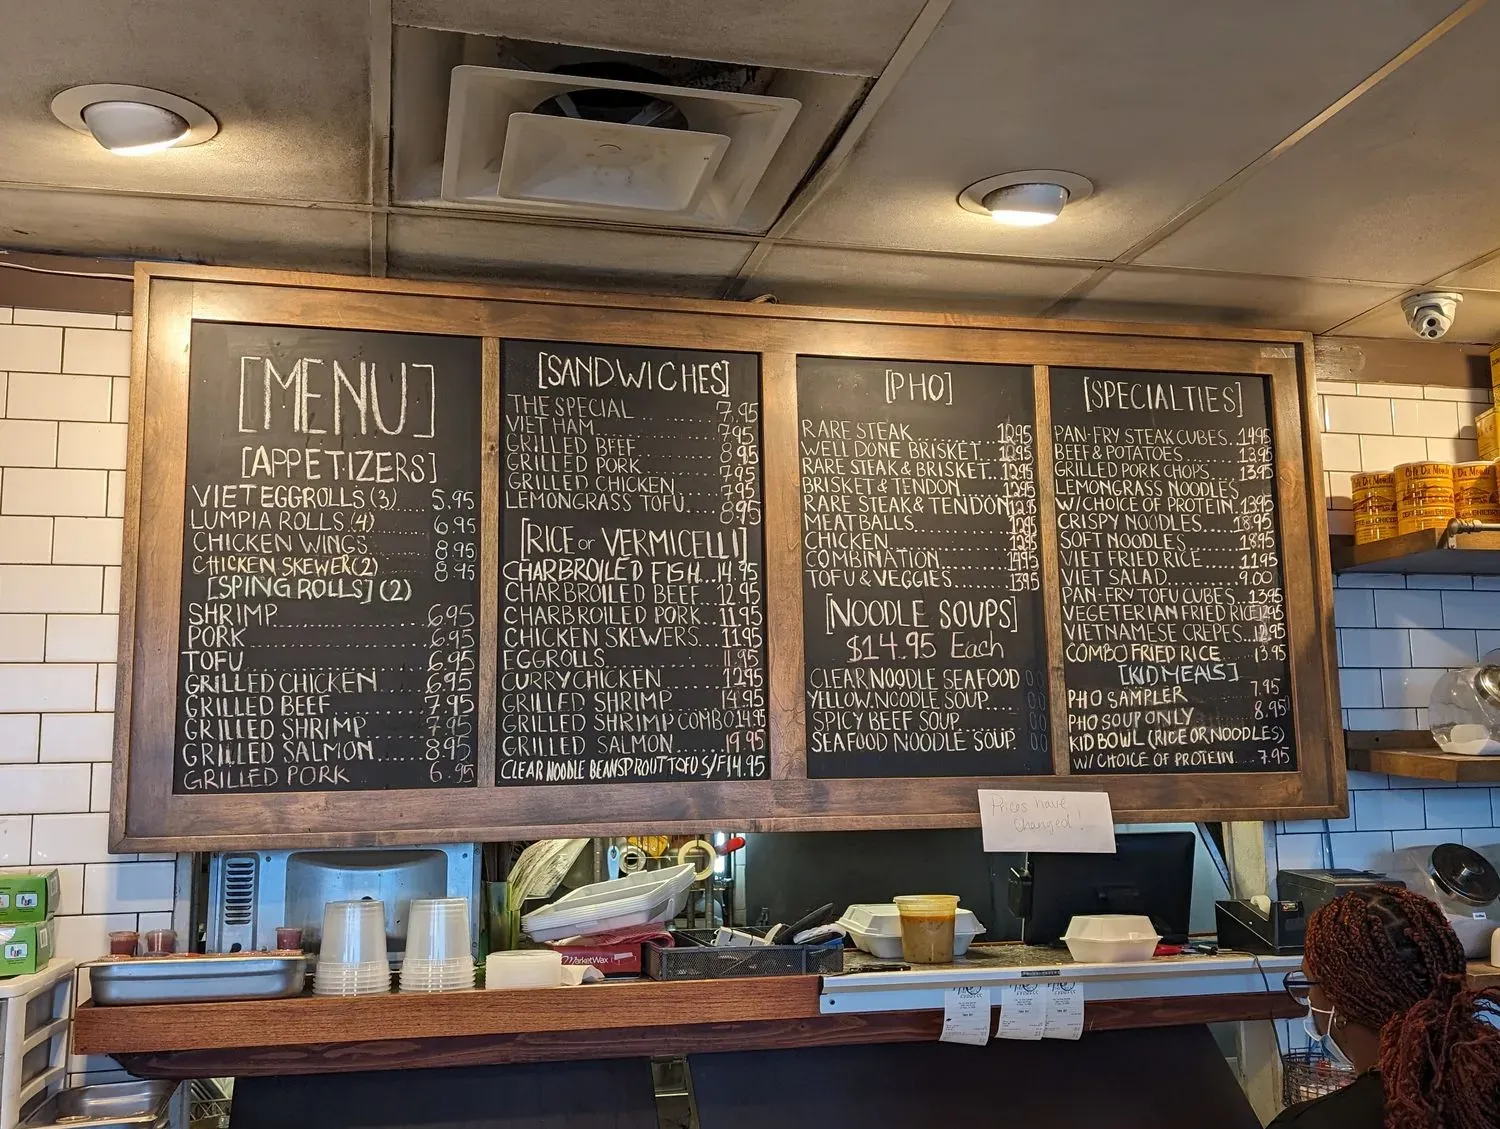 [MENU]
[APPETIZERS]
VIET EGGROLLS (3) 5.95
LUMPIA ROLLS (4) 6.95
CHICKEN WINGS 8.95
CHICKEN SKEWER (2) 8.95
[SPING ROLLS] (2)
SHRIMP 6.95
PORK 6.95
TOFU 6.95
GRILLED CHICKEN 6.95
GRILLED BEEF 7.95
GRILLED SHRIMP 7.95
GRILLED SALMON 8.95
GRILLED PORK 6.95
[SANDWICHES]
THE SPECIAL 7.95
VIET HAM 7.95
GRILLED BEEF 8.95
GRILLED PORK 7.95
GRILLED CHICKEN 7.95
LEMONGRASS TOFU 8.95
[RICE or VERMICELLI]
CHARBROILED FISH 14.95
CHARBROILED BEEF 12.95
CHARBROILED PORK 11.95
CHICKEN SKEWERS 11.95
EGGROLLS 11.95
CURRY CHICKEN 12.95
GRILLED SHRIMP 14.95
GRILLED SHRIMP COMBO 14.95
GRILLED SALMON 19.95
CLEAR NOODLE BEANSPROUT TOFU S/F 14.95
[PHO]
RARE STEAK 12.95
WELL DONE BRISKET 12.95
RARE STEAK & BRISKET 12.95
BRISKET & TENDON 12.95
RARE STEAK & TENDON
MEATBALLS 12.95
CHICKEN 12.95
COMBINATION 14.95
TOFU & VEGGIES 13.95
[NOODLE SOUPS]
$14.95 Each
CLEAR NOODLE SEAFOOD
YELLOW NOODLE SOUP
SPICY BEEF SOUP
SEAFOOD NOODLE SOUP
[SPECIALTIES]
PAN-FRY STEAK CUBES 14.95
BEEF & POTATOES 13.95
GRILLED PORK CHOPS 13.95
LEMONGRASS NOODLES
W/CHOICE OF PROTEIN 13.95
CRISPY NOODLES 18.95
SOFT NOODLES 18.95
VIET FRIED RICE 11.95
VIET SALAD 9.00
PAN-FRY TOFU CUBES 13.95
VEGETERIAN FRIED RICE 12.95
VIETNAMESE CREPES 12.95
COMBO FRIED RICE 13.95
[KID MEALS]
PHO SAMPLER 7.95
PHO SOUP ONLY 8.95
KID BOWL (RICE OR NOODLES)
W/ CHOICE OF PROTEIN 7.95
Prices have
Changed!
Cafe Du Monde
MarketWax